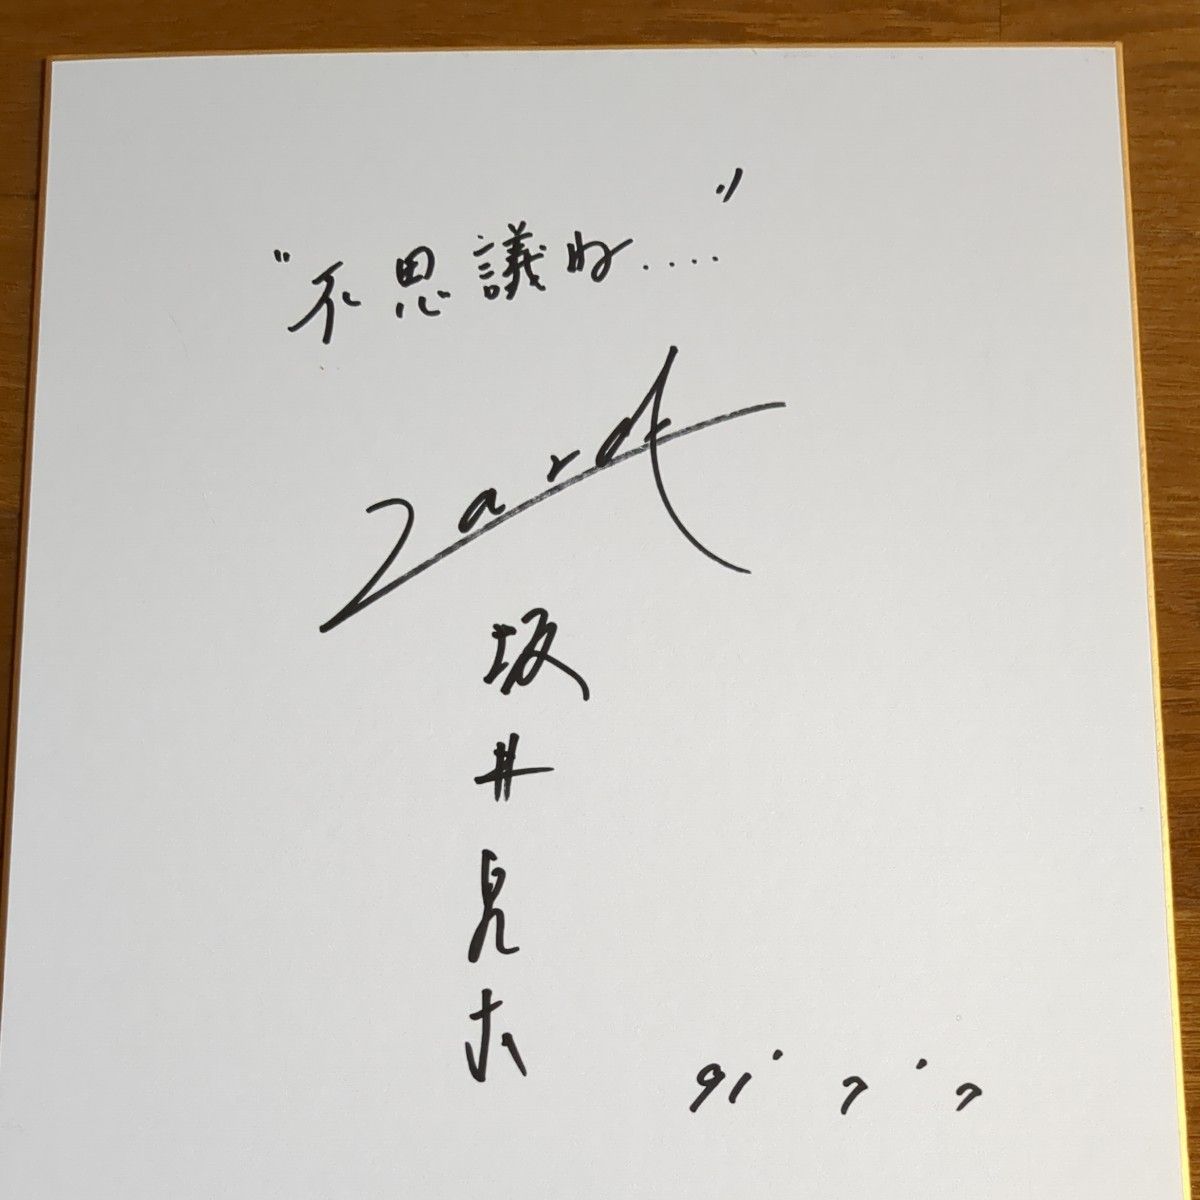 "不思議ね...."
Zard
坂井泉水
91・7・7